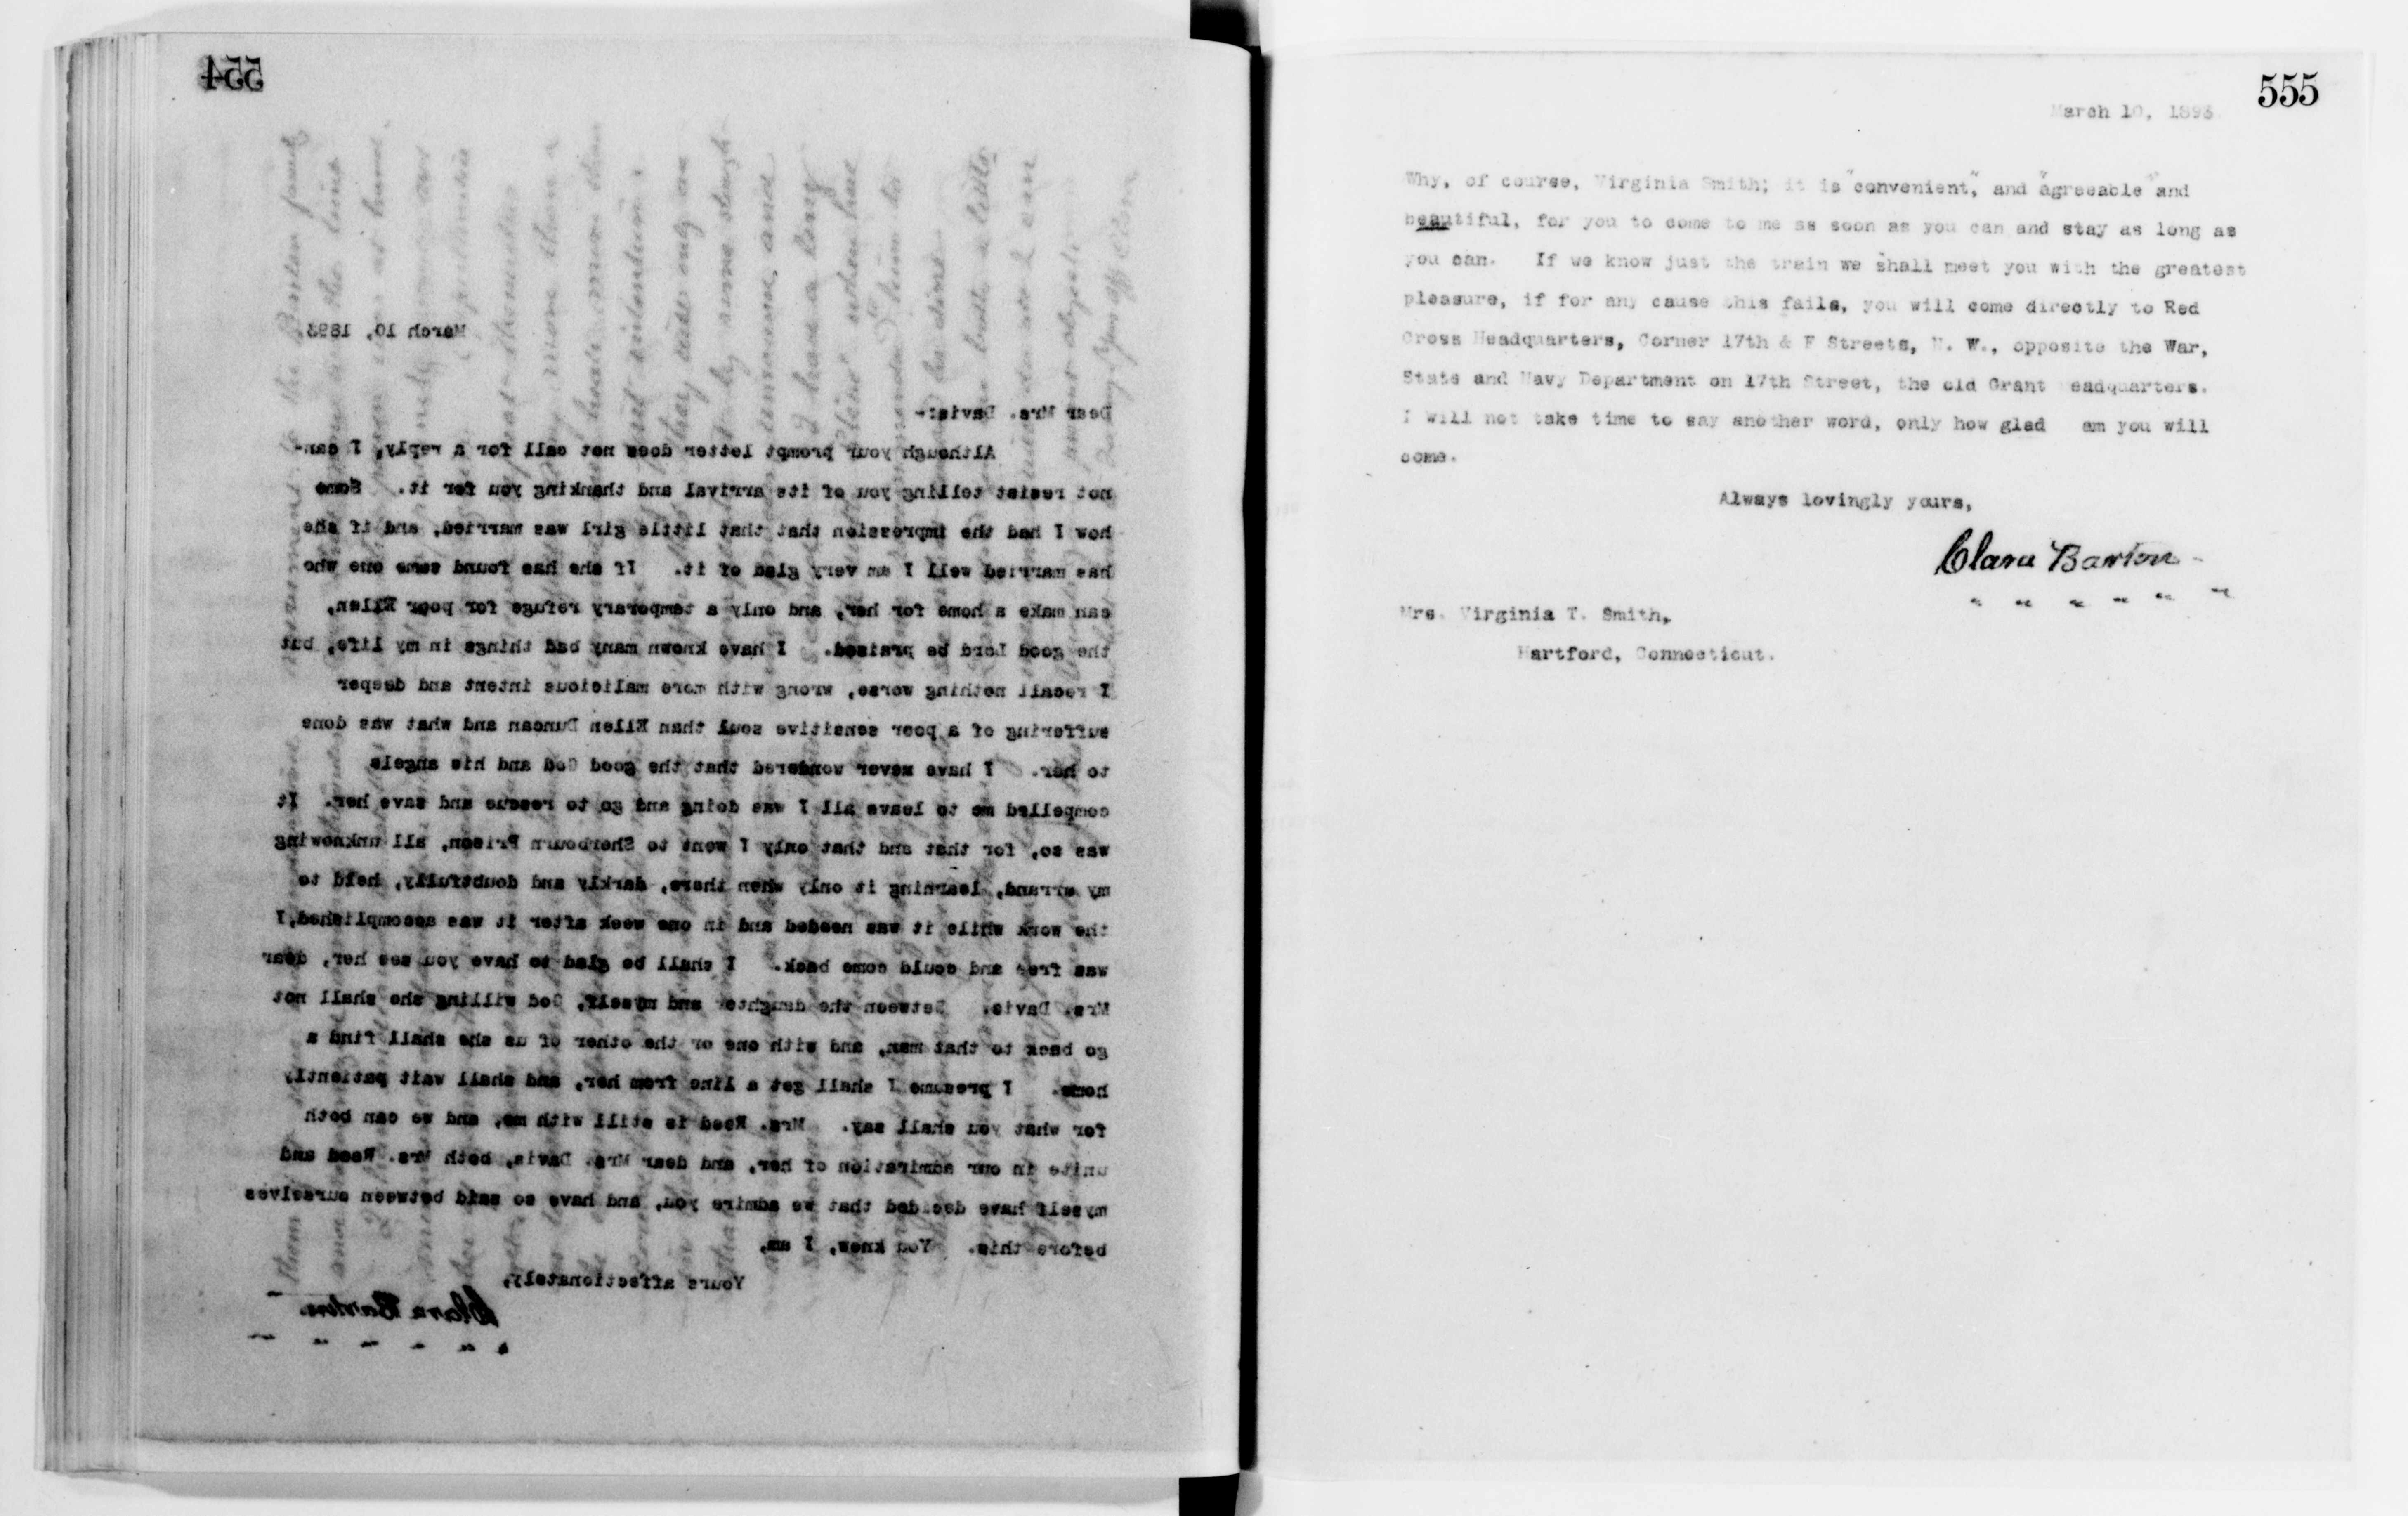 554
March 10, 1893.
Dear Mrs. Davis:-
Although your prompt letter does not call for a reply, I can-
not resist telling you of its arrival and thanking you for it. Some
how I had the impression that that little girl was married, and if she
has married well I am very glad of it. If she has found some one who
can make a home for her, and only a temporary refuge for poor Ellen,
the good Lord be praised. I have known many bad things in my life, but
I recall nothing worse, wrong with more malicious intent and deeper
suffering of a poor sensitive soul than Ellen Duncan and what was done
to her. I have never wondered that the good God and his angels
compelled me to leave all I was doing and go to rescue and save her. It
was so, for that and that only I went to Sherbourn Prison, all unknowing
my errand, learning it only when there, darkly and doubtfully, held to
the work while it was needed and in one week after it was accomplished, I
was free and could come back. I shall be glad to have you see her, dear
Mrs. Davis. Between the daughter and myself, God willing she shall not
go back to that man, and with one or the other of us she shall find a
home. I presume I shall get a line from her, and shall wait patiently
for what you shall say. Mrs. Reed is still with me, and we can both
unite in our admiration of her, and dear Mrs. Davis, both Mrs. Reed and
myself have decided that we admire you, and have so said between ourselves
before this. You know, I am,
Yours affectionately,
Clara Barton.
555
March 10, 1893
Why, of course, Virginia Smith; it is "convenient", and "agreeable" and
beautiful, for you to come to me as soon as you can and stay as long as
you can. If we know just the train we shall meet you with the greatest
pleasure, if for any cause this fails, you will come directly to Red
Cross Headquarters, Corner 17th & F Streets, N. W., opposite the War,
State and Navy Department on 17th Street, the old Grant eadquarters.
I will not take time to say another word, only how glad am you will
come.
Always lovingly yours,
Clara Barton
Mrs. Virginia T. Smith,
Hartford, Connecticut.